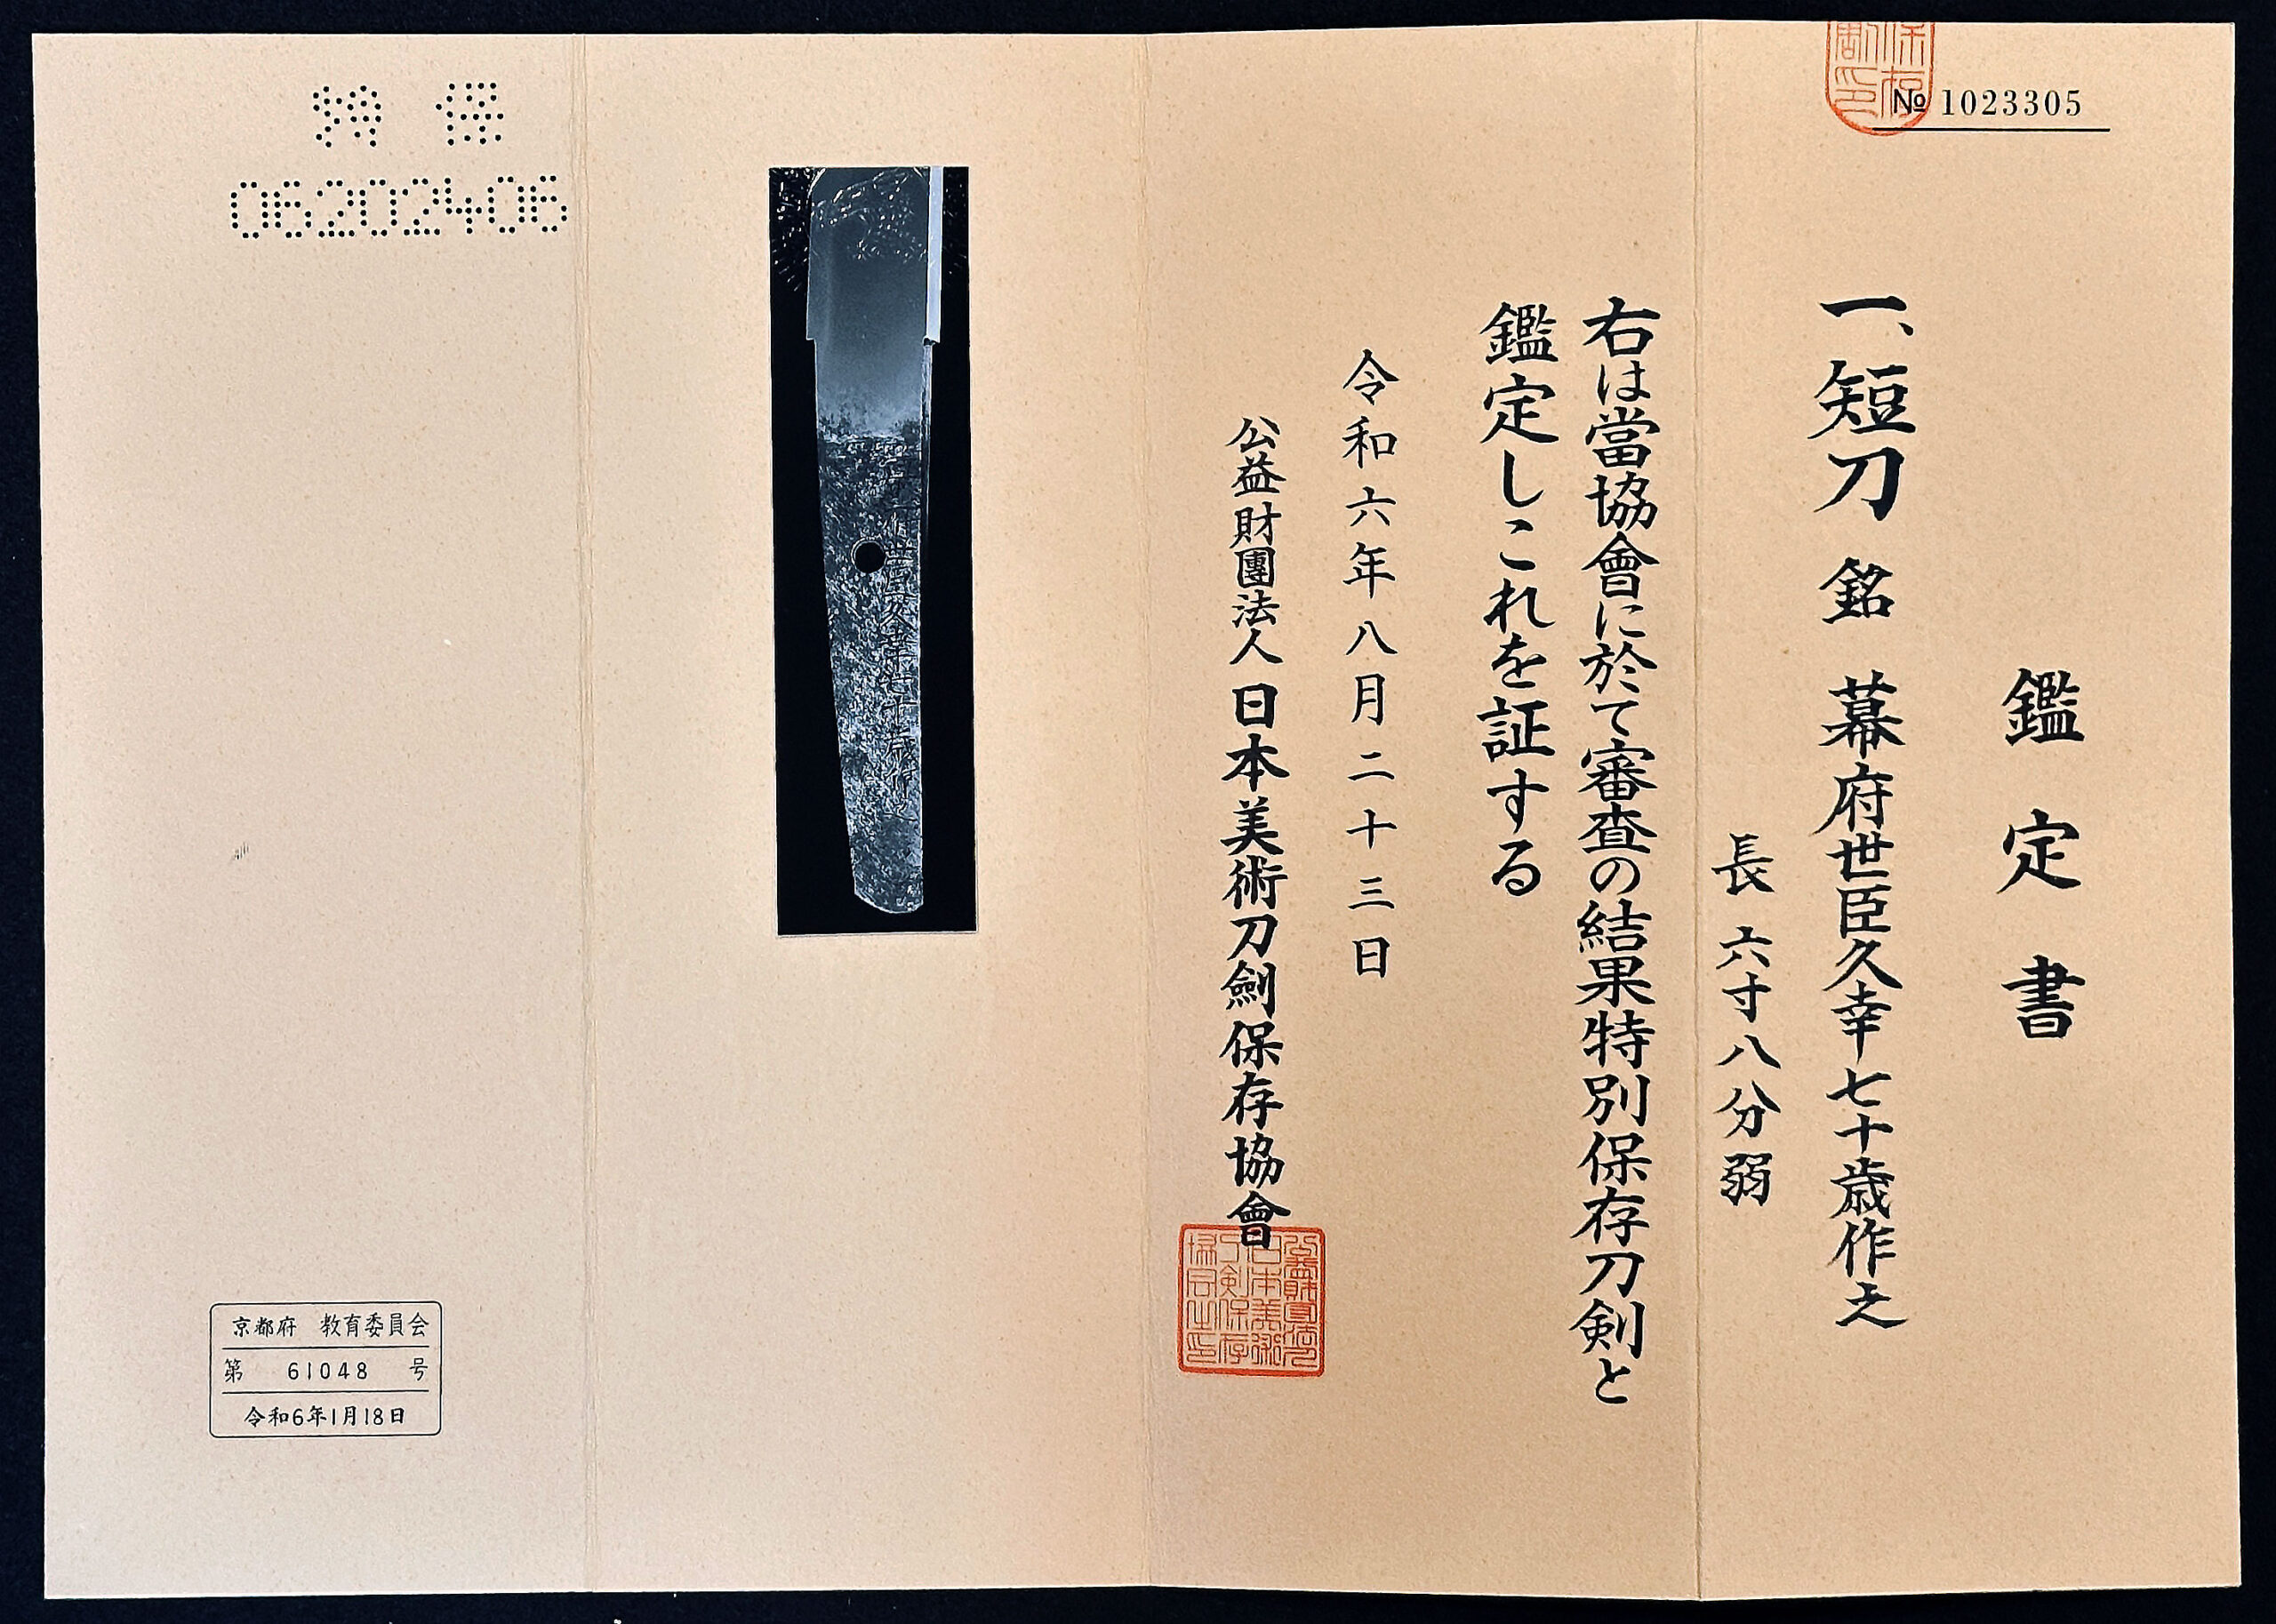 № 1023305
鑑定書
一、短刀 銘 幕府世臣久幸七十歳作之
長 六寸八分弱
右は當協會に於て審査の結果特別保存刀剣と
鑑定しこれを証する
令和六年八月二十三日
公益財團法人 日本美術刀劍保存協會
特 保
06202406
京都府 教育委員会
第 61048 号
令和6年1月18日